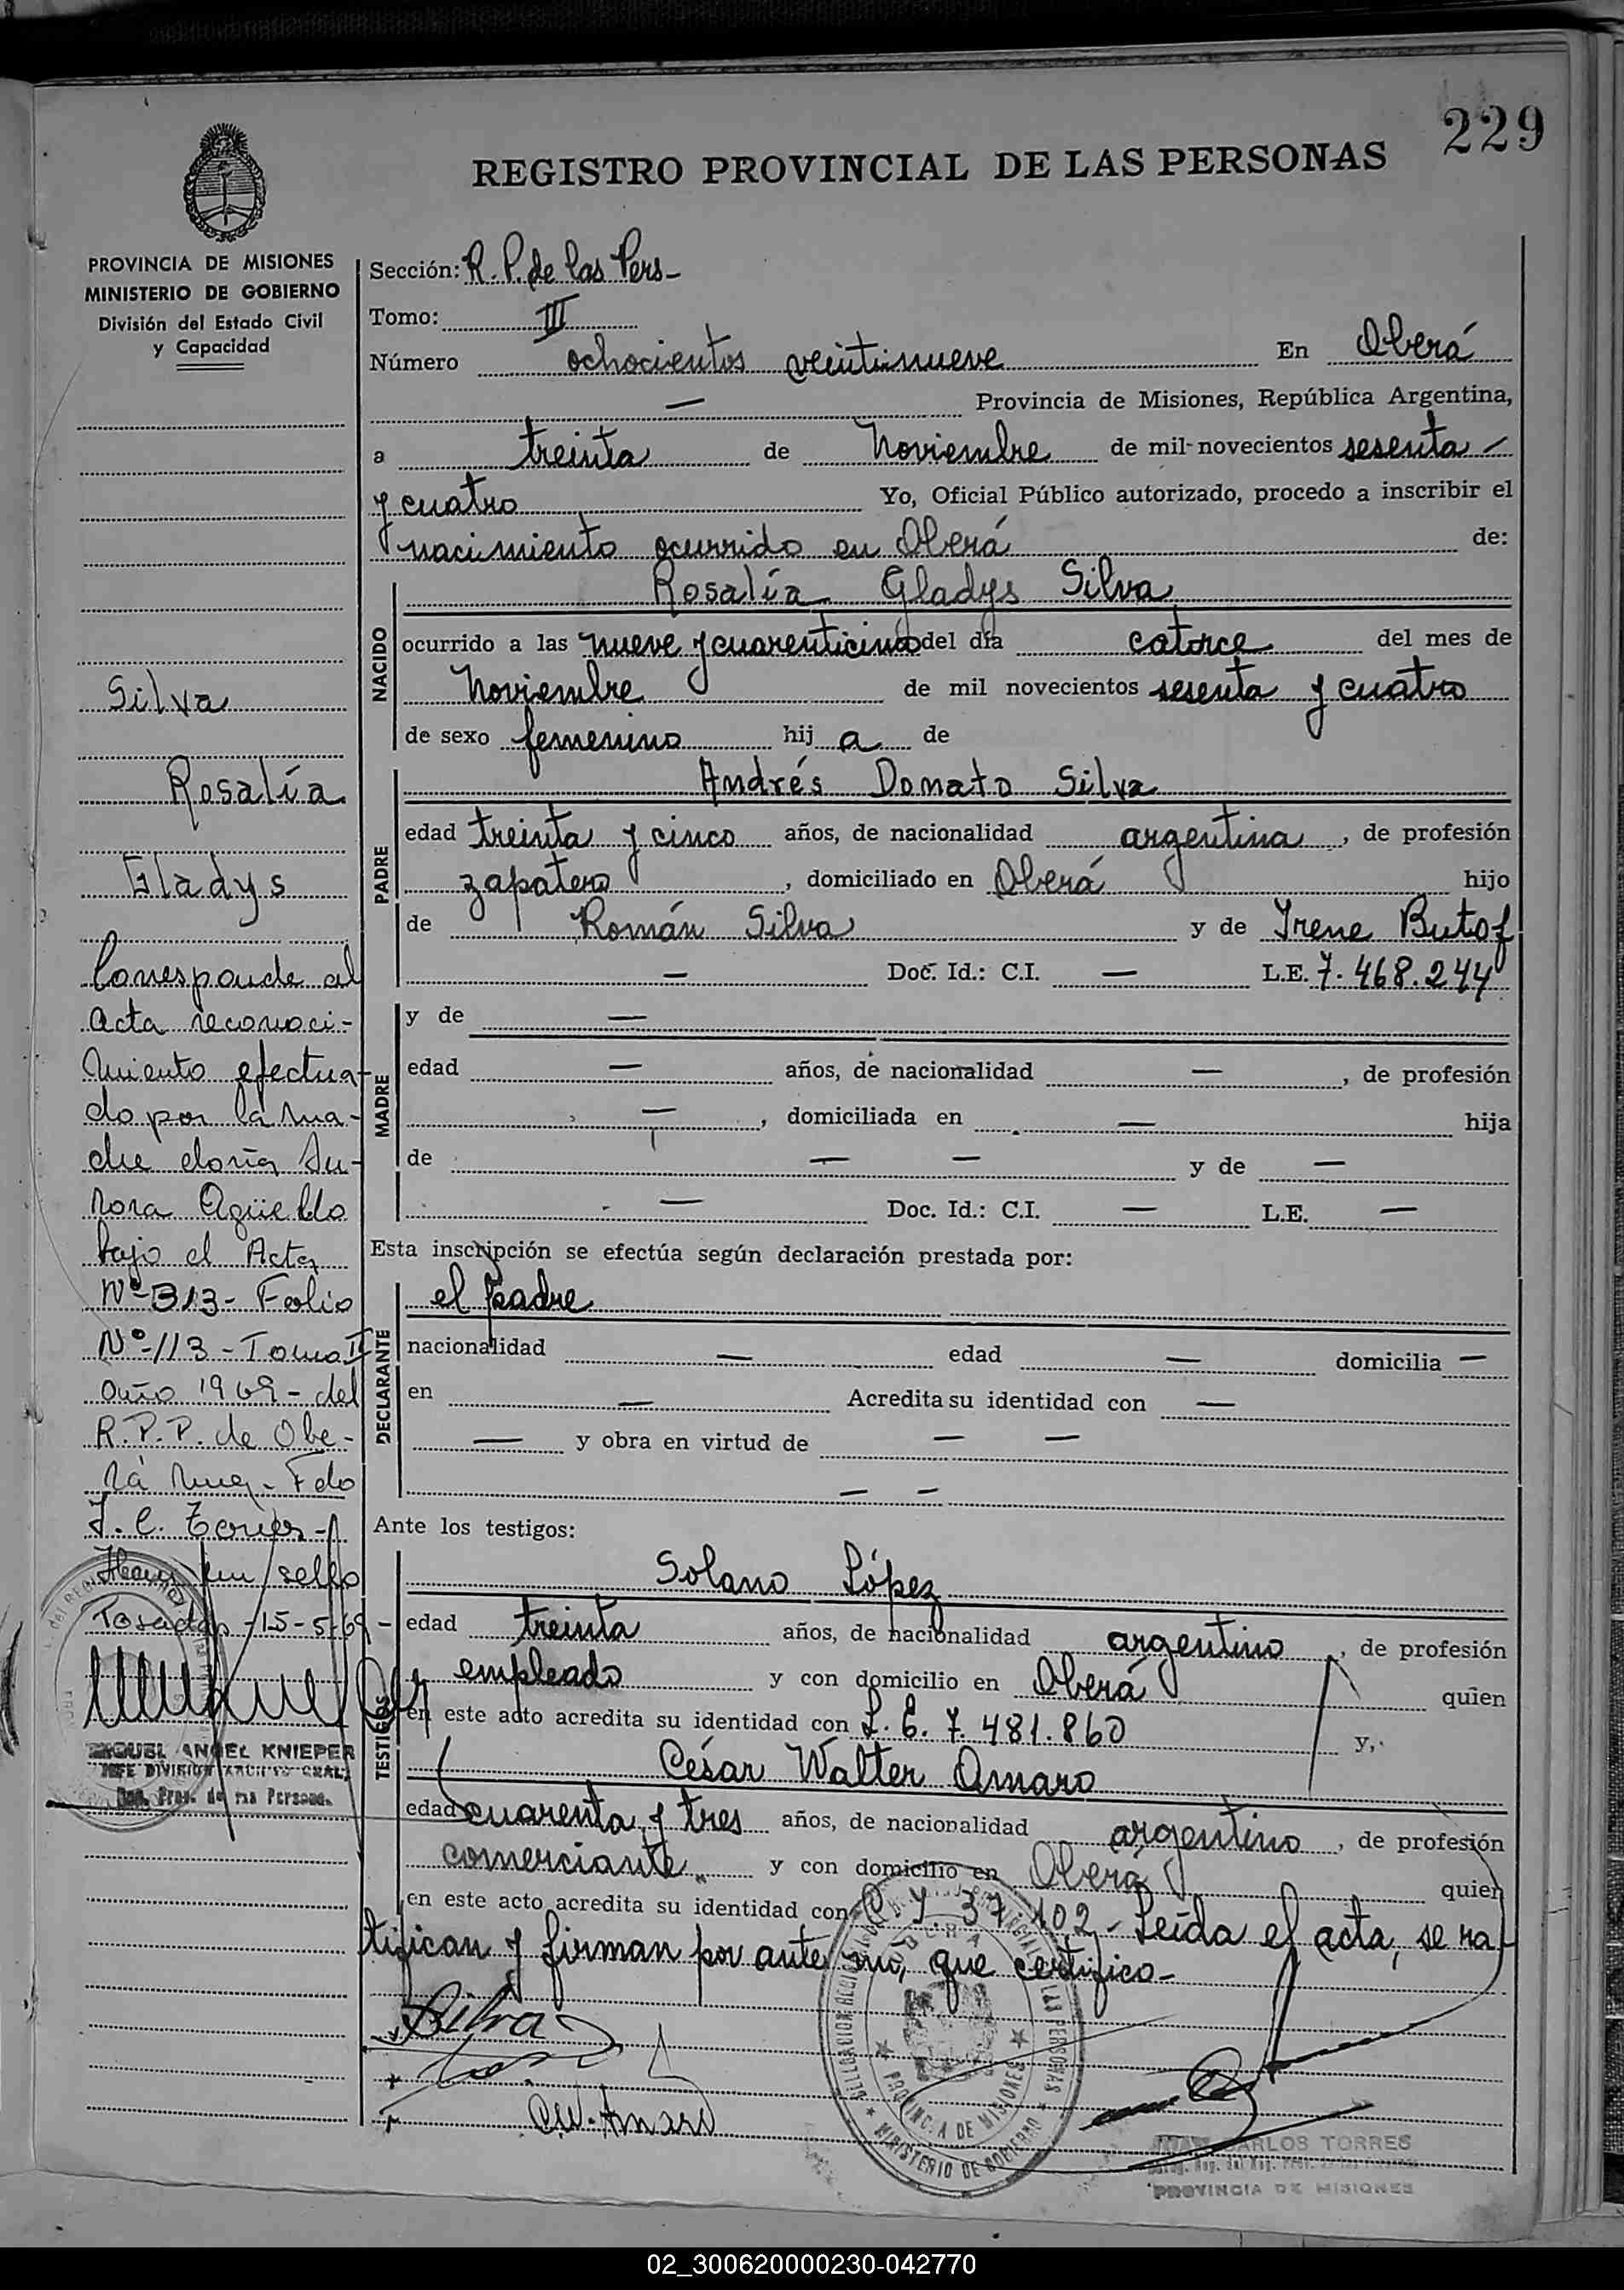 229
REGISTRO PROVINCIAL DE LAS PERSONAS
PROVINCIA DE MISIONES
MINISTERIO DE GOBIERNO
División del Estado Civil
y Capacidad
Silva
Rosalía
Gladys
Corresponde al
Acta reconoci-
miento efectua-
do por la ma-
dre doña Au-
rora Agüello
bajo el Acta
Nº-313- Folio
Nº-113-Tomo II
año 1969- del
R.P.P. de Obe-
rá Mnes- Fdo
J. C. Torres-
Hay un sello
Posadas -15-5-69-
MIGUEL ANGEL KNIEPER
JEFE DIVISION ARCHIVO GRAL.
Sección: R. P. de las Pers-
Tomo: III
Número ochocientos veintinueve En Oberá
— Provincia de Misiones, República Argentina,
a treinta de Noviembre de mil novecientos sesenta -
y cuatro Yo, Oficial Público autorizado, procedo a inscribir el
nacimiento ocurrido en Oberá de:
NACIDO
Rosalía Gladys Silva
ocurrido a las nueve y cuarenticinco del día catorce del mes de
Noviembre de mil novecientos sesenta y cuatro
de sexo femenino hij a de
PADRE
Andrés Donato Silva
edad treinta y cinco años, de nacionalidad argentina, de profesión
zapatero, domiciliado en Oberá hijo
de Román Silva y de Irene Butof
— Doc. Id.: C.I. — L.E. 7.468.244
MADRE
y de —
edad — años, de nacionalidad —, de profesión
—, domiciliada en — hija
de — — y de —
— Doc. Id.: C.I. — L.E. —
Esta inscripción se efectúa según declaración prestada por:
DECLARANTE
el padre
nacionalidad — edad — domicilia —
en — Acredita su identidad con —
— y obra en virtud de — —
— —
Ante los testigos:
TESTIGOS
Solano López
edad treinta años, de nacionalidad argentino, de profesión
empleado y con domicilio en Oberá quien
en este acto acredita su identidad con L. E. 7.481.860 y,
César Walter Amaro
edad cuarenta y tres años, de nacionalidad argentino, de profesión
comerciante y con domicilio en Oberá quien
en este acto acredita su identidad con C. I. 37.102- Leída el acta, se ra-
tifican y firman por ante mí, que certifico-
Silva
C.W. Amaro
OBERA
PROVINCIA DE MISIONES
MINISTERIO DE GOBIERNO
JUAN CARLOS TORRES
PROVINCIA DE MISIONES
02_300620000230-042770